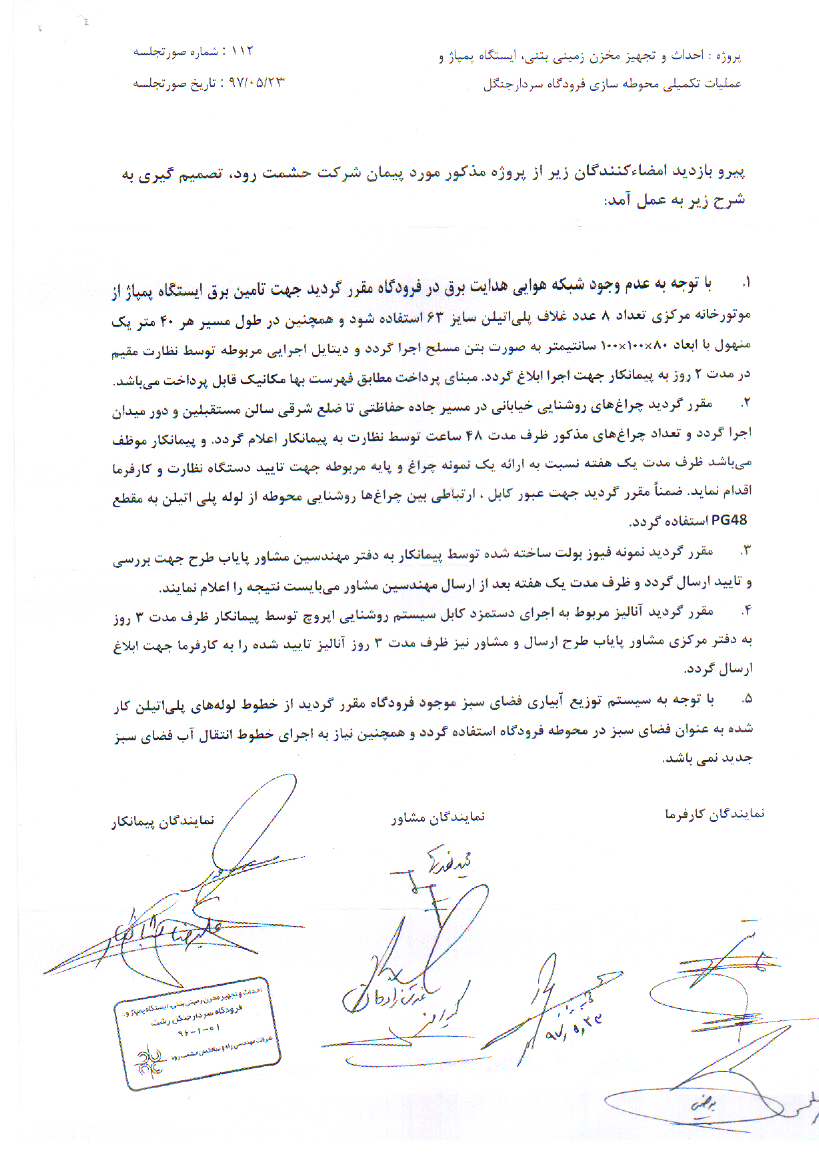 پروژه : احداث و تجهیز مخزن زمینی بتنی، ایستگاه پمپاژ و
عملیات تکمیلی محوطه سازی فرودگاه سردارجنگل
شماره صورتجلسه : ۱۱۲
تاریخ صورتجلسه : ۹۷/۰۵/۲۳
پیرو بازدید امضاءکنندگان زیر از پروژه مذکور مورد پیمان شرکت حشمت رود، تصمیم گیری به
شرح زیر به عمل آمد:
۱. با توجه به عدم وجود شبکه هوایی هدایت برق در فرودگاه مقرر گردید جهت تامین برق ایستگاه پمپاژ از
موتورخانه مرکزی تعداد ۸ عدد غلاف پلی‌اتیلن سایز ۶۳ استفاده شود و همچنین در طول مسیر هر ۴۰ متر یک
منهول با ابعاد ۸۰×۱۰۰×۱۰۰ سانتیمتر به صورت بتن مسلح اجرا گردد و دیتایل اجرایی مربوطه توسط نظارت مقیم
در مدت ۲ روز به پیمانکار جهت اجرا ابلاغ گردد. مبنای پرداخت مطابق فهرست بها مکانیک قابل پرداخت می‌باشد.
۲. مقرر گردید چراغ‌های روشنایی خیابانی در مسیر جاده حفاظتی تا ضلع شرقی سالن مستقبلین و دور میدان
اجرا گردد و تعداد چراغ‌های مذکور ظرف مدت ۴۸ ساعت توسط نظارت به پیمانکار اعلام گردد. و پیمانکار موظف
می‌باشد ظرف مدت یک هفته نسبت به ارائه یک نمونه چراغ و پایه مربوطه جهت تایید دستگاه نظارت و کارفرما
اقدام نماید. ضمناً مقرر گردید جهت عبور کابل ، ارتباطی بین چراغ‌ها روشنایی محوطه از لوله پلی اتیلن به مقطع
PG48 استفاده گردد.
۳. مقرر گردید نمونه فیوز بولت ساخته شده توسط پیمانکار به دفتر مهندسین مشاور پایاب طرح جهت بررسی
و تایید ارسال گردد و ظرف مدت یک هفته بعد از ارسال مهندسین مشاور می‌بایست نتیجه را اعلام نمایند.
۴. مقرر گردید آنالیز مربوط به اجرای دستمزد کابل سیستم روشنایی اپروچ توسط پیمانکار ظرف مدت ۳ روز
به دفتر مرکزی مشاور پایاب طرح ارسال و مشاور نیز ظرف مدت ۳ روز آنالیز تایید شده را به کارفرما جهت ابلاغ
ارسال گردد.
۵. با توجه به سیستم توزیع آبیاری فضای سبز موجود فرودگاه مقرر گردید از خطوط لوله‌های پلی‌اتیلن کار
شده به عنوان فضای سبز در محوطه فرودگاه استفاده گردد و همچنین نیاز به اجرای خطوط انتقال آب فضای سبز
جدید نمی باشد.
نمایندگان کارفرما
نمایندگان مشاور
نمایندگان پیمانکار
علیرضا
۹۷,۵,۲۳
احداث و تجهیز مخزن زمینی بتنی، ایستگاه پمپاژ و
فرودگاه سردار جنگل رشت
۹۶-۱-۰۱
شرکت مهندسی راه و ساختمان حشمت رود